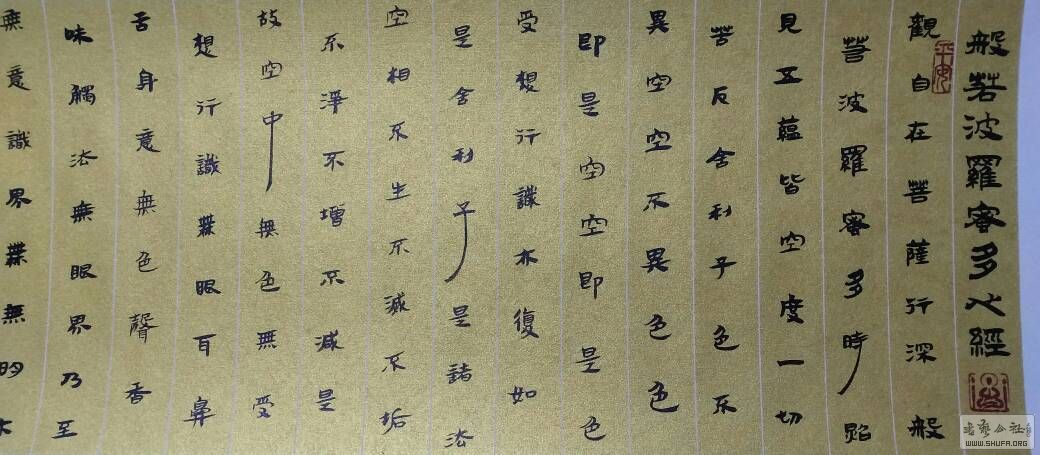 般若波羅蜜多心經
平安
觀自在菩薩行深般
若波羅蜜多時照
見五蘊皆空度一切
苦厄舍利子色不
異空空不異色色
即是空空即是色
受想行識亦復如
是舍利子是諸法
空相不生不滅不垢
不淨不增不減是
故空中無色無受
想行識無眼耳鼻
舌身意無色聲香
味觸法無眼界乃至
無意識界無無明亦
書藝公社
WWW.SHUFA.ORG